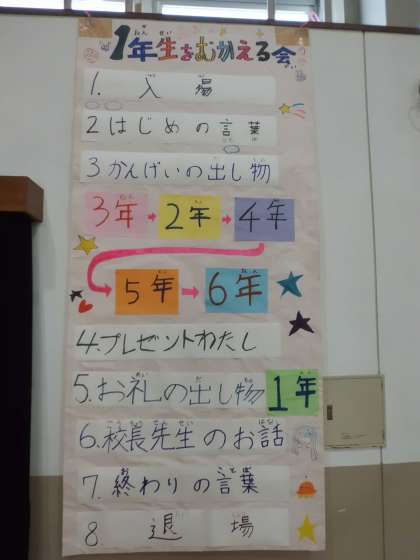 1年生をむかえる会
1. 入場
2 はじめの言葉
3 かんげいの出し物
3年 → 2年 → 4年
→ 5年 → 6年
4. プレゼントわたし
5. お礼の出し物 1年
6. 校長先生のお話
7. 終わりの言葉
8 退場